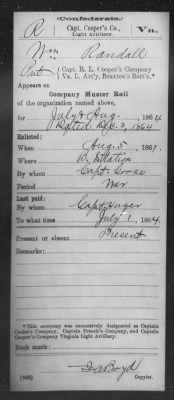 (Confederate.)
R Capt. Cooper's Co., Va.
Light Artillery.
Wm Randall
Pvt, Capt. R. L. Cooper's Company
Va. L. Art'y, Braxton's Batt'n.*
Appears on
Company Muster Roll
of the organization named above,
for July & Aug., 1864.
Dated Dec. 3, 1864
Enlisted:
When Aug. 5, 1861.
Where B. Station
By whom Capt. Cooke
Period War
Last paid:
By whom Capt. Hager
To what time July 1, 1864.
Present or absent Present
Remarks:
*This company was successively designated as Captain
Cooke's Company, Captain French's Company, and Captain
Cooper's Company Virginia Light Artillery.
Book mark:
Boyd
(642) Copyist.